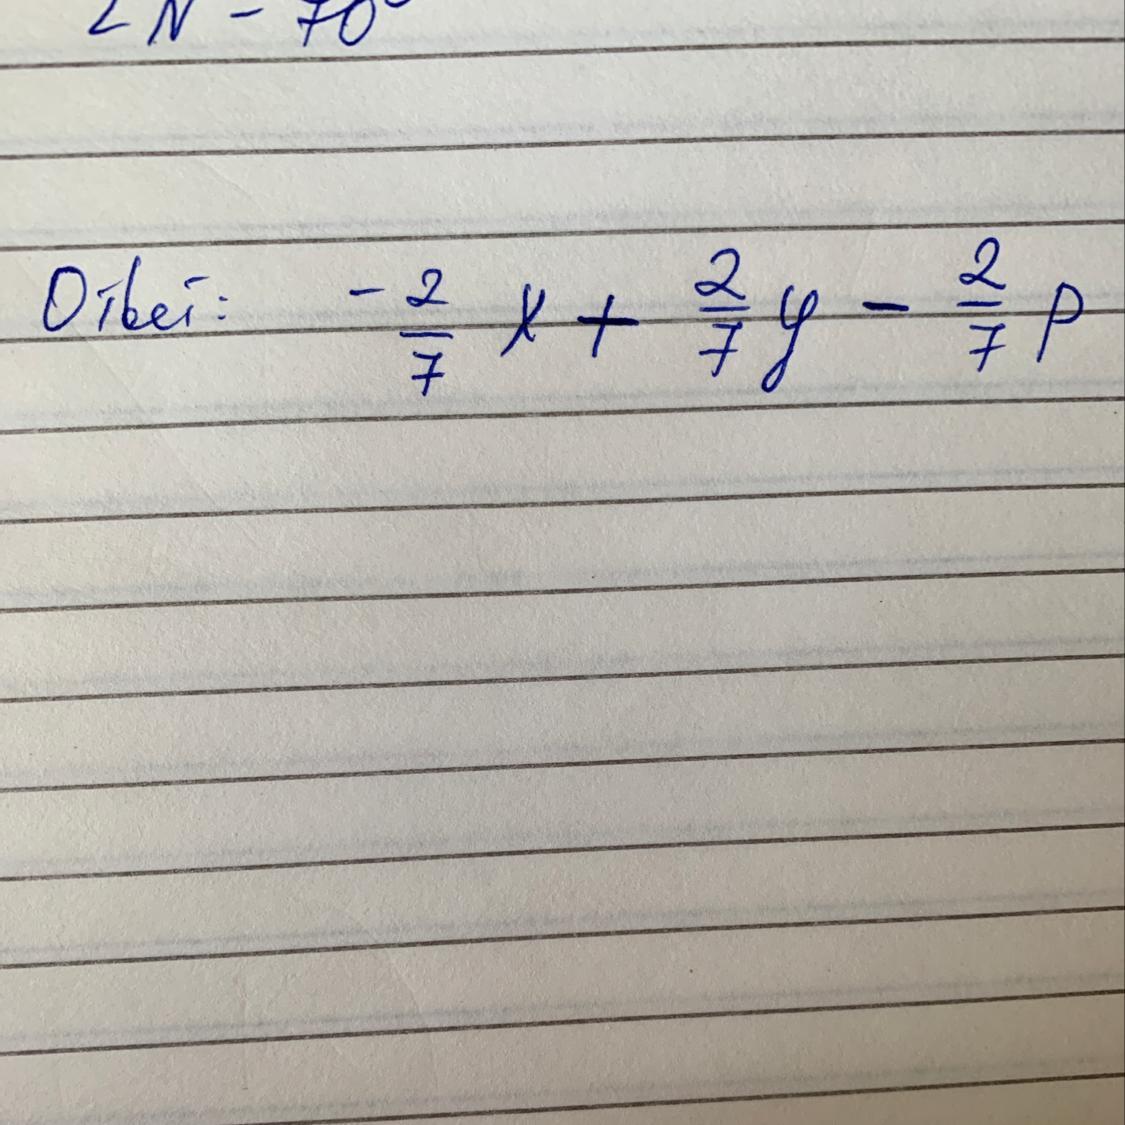 ∠N = 70°
Ответ: -2/7 x + 2/7 y - 2/7 p